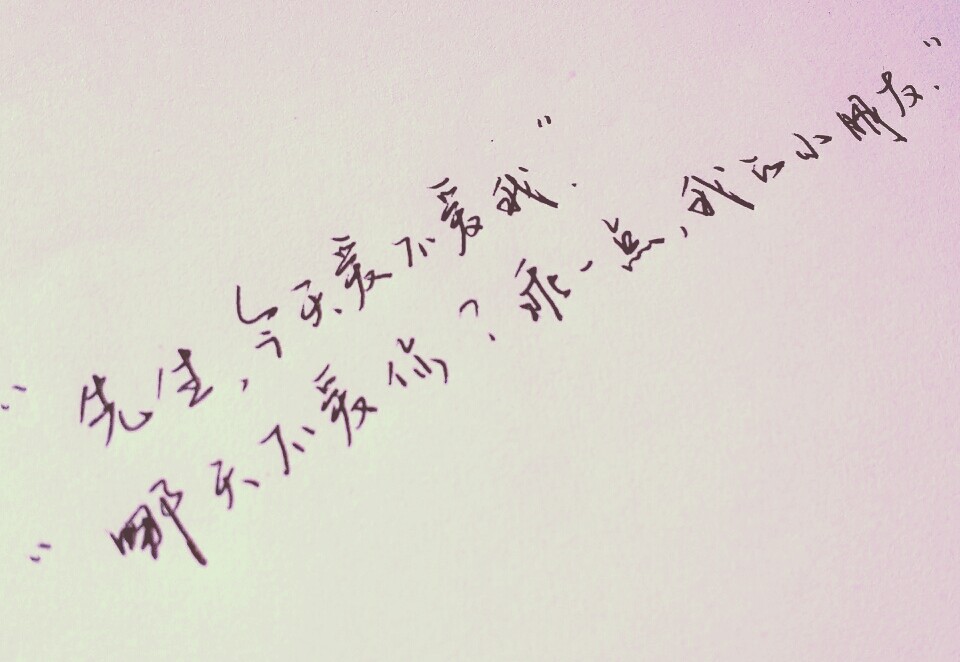 “先生，今天爱不爱我.”
“哪天不爱你？乖一点，我的小朋友.”